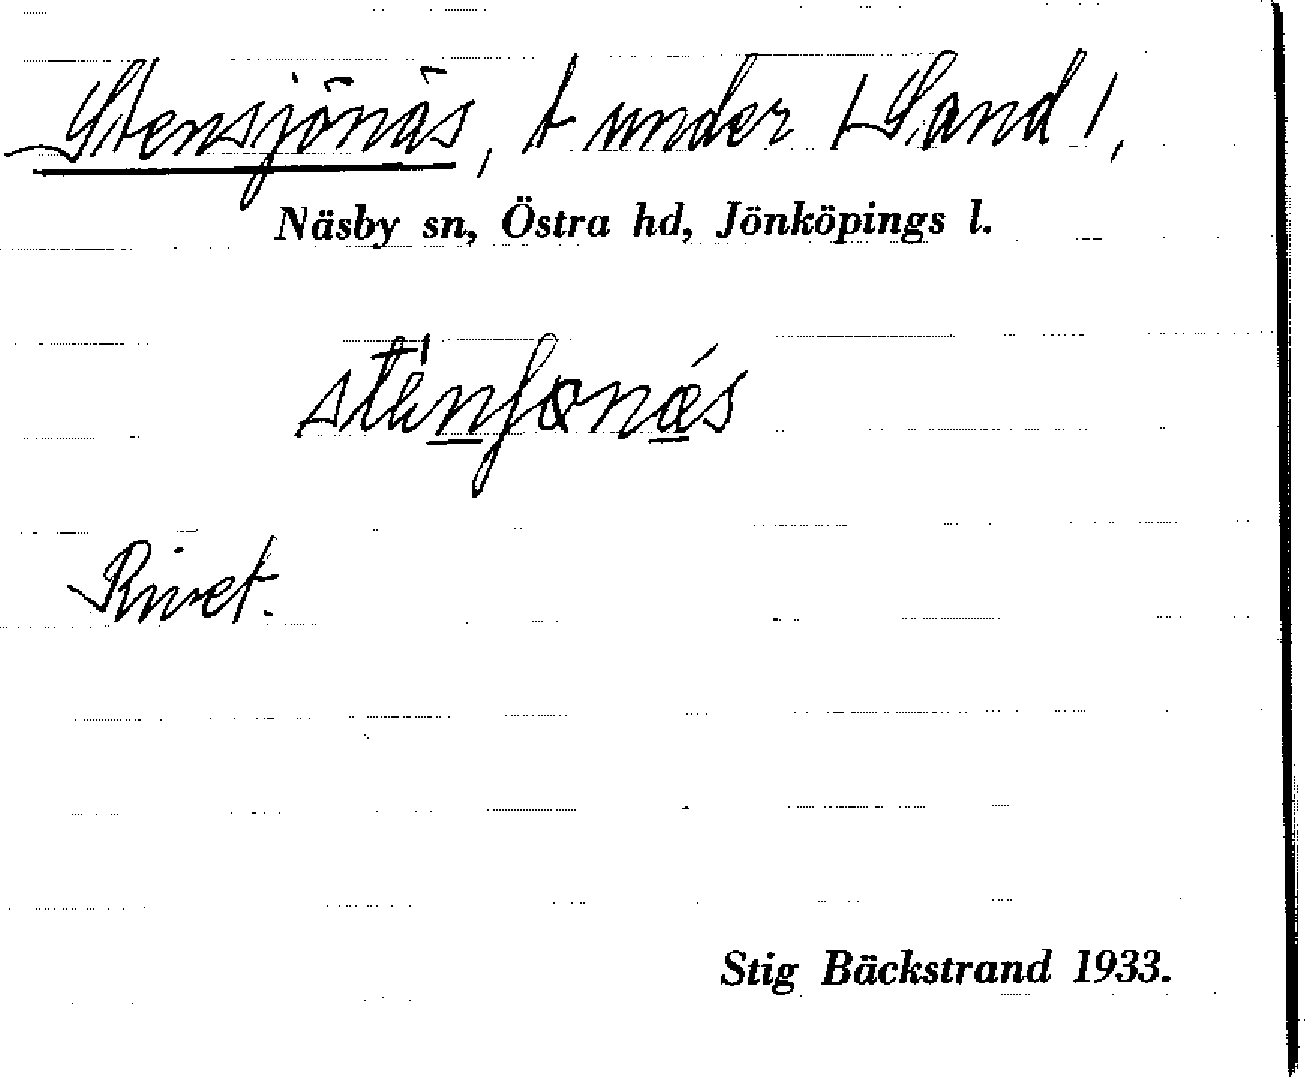 Stensjönäs, t under Sand 1,
Näsby sn, Östra hd, Jönköpings l.
Rivet.
Stig Bäckstrand 1933.